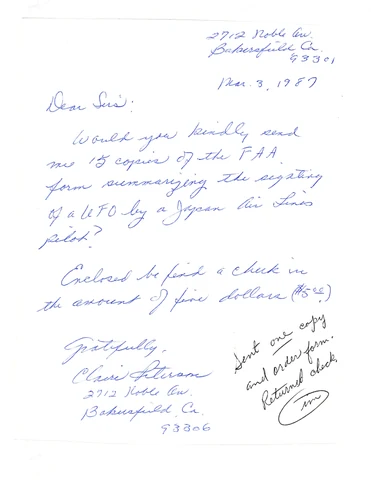 2712 Noble Av.
Bakersfield Ca.
93301
Mar. 3, 1987
Dear Sirs:
Would you kindly send
me 15 copies of the FAA
form summarizing the sighting
of a UFO by a Japan Air Lines
pilot?
Enclosed be find a check in
the amount of five dollars ($5.00)
Gratefully,
Claire
2712 Noble Av.
Bakersfield, Ca.
93306
Sent one copy
and order form.
Returned check.